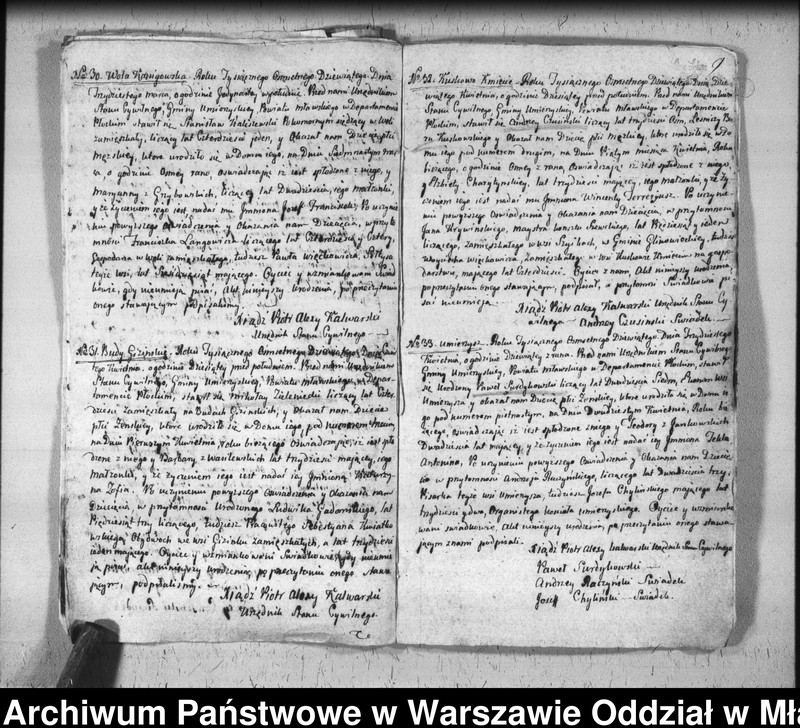 No 30. Wola Kanigowska. Roku Tysiącznego Osmsetnego Dziewiątego. Dnia
Trzydziestego marca, o godzinie Jedynastey, wpołudnie. Przed nami Urzędnikiem
Stanu Cywilnego, Gminy Umienyskiey, Powiatu Mławskiego w Departamencie
Płockim stawił się Stanisław
zamięszkały, liczący lat Czterdzieści jeden, y Okazał nam Dziecię płci
męskiey, ktore urodziło się w Domu jego, na Dniu
o godzinie Osmey rano, oswiadczając iż jest spłodzone z niego, y
Maryanny z Grzybowskich, liczącey lat Dwadzieścia, jego małżonki,
y że życzeniem jego jest nadać mu Jmiona Jozef Franciszek. Po uczynie-
niu powyższego oswiadczenia y Okazania nam Dziecięcia, w przyto-
mności Franciszka Langowicza liczącego lat Czterdzieści y Cztery,
Gospodarza w Woli zamięszkałego, tudzież Pawła Więckowicza,
teyże wsi, lat mającego. Oycieć y wzmiankowani Świad-
kowie, gdy nieumieją pisać, Akt ninieyszy Urodzenia, po przeczytaniu
onego stawającym podpisaliśmy.
Xiądz Piotr Alexy Kalwarski
Urzędnik Stanu Cywilnego
No 31. Budy Gzińskie. Roku Tysiącznego Osmsetnego Dziewiątego, Dnia
Kwietnia, o godzinie Dziesiątey przed południem. Przed nami Urzędnikiem
Stanu Cywilnego, Gminy Umienyskiey, Powiatu Mławskiego, w Depar-
tamencie Płockim, stawił się Mikołay Zieleniecki liczący lat Czter-
dzieści zamięszkały na Budach Gzińskich, y Okazał nam Dziecię
płci Żeńskiey, ktore urodziło się w Domu jego, pod numerem trzecim,
na Dniu Pierwszym Kwietnia, roku bieżącego Oswiadczając, iż jest spło-
dzone z niego y Barbary z Wasilewskich lat trzydzieści mającey, jego
małżonki, y że życzeniem jego jest nadać jey Jmiona
na Zofia. Po uczynieniu powyższego Oswiadczenia y Okazania nam
Dziecięcia, w przytomności Urodzonego Ludwika Gadomskiego, lat
Pięćdziesiąt trzy liczącego, tudzież Pracowitego Sebestyana Kwiatko-
wskiego, Obydwoch we wsi Gzinku zamięszkałych, a lat trzydzieści
jeden mającego. Oycieć y wzmiankowani Świadkowie gdy nieumie-
ją pisać, Akt ninieyszy Urodzenia, po przeczytaniu onego stawa-
jącym, podpisaliśmy.
Xiądz Piotr Alexy Kalwarski
Urzędnik Stanu Cywilnego.
9
No 32. Kuskowo Kmiecie. Roku Tysiącznego Osmsetnego Dziewiątego Dnia Dzie-
wiątego Kwietnia, o godzinie Dziesiątey, przed południem. Przed nami Urzędnikiem
Stanu Cywilnego, Gminy Umienyskiey, Powiatu Mławskiego w Departamencie
Płockim, stawił się Andrzey Czusiński liczący lat trzydzieści Osm, Leśniczy Bo-
ru Kuskowskiego y Okazał nam Dziecię płci męzkiey, ktore urodziło się w Do-
mu jego pod numerem drugim, na Dniu Piątym miesiąca Kwietnia, Roku
bieżącego, o godzinie Osmey z rana, Oswiadczając iż jest spłodzone z niego,
y Elżbiety Charzyńskiey, lat trzydzieści mającey, jego małżonki, y że ży-
czeniem jego jest nadać mu Jmiona Wincenty Ferreryusz. Po uczynie-
niu powyższego Oswiadczenia y Okazania nam Dziecięcia, w przytomności
Jana Krzywińskiego, Maystra kunsztu Szewskiego, lat Pięćdziesiąt y jeden
liczącego, zamięszkałego w wsi w Gminie tudzież
Woyciecha Więckowicza, Zamięszkałego w wsi Kuskowie Kmieciach na gospo-
darstwie, mającego lat Czterdzieści. Oycieć z nami, Akt ninieyszy urodzenia
poprzeczytaniu onego stawającym, podpisał, a przytomni Świadkowie pi-
sać nieumieją.
Xiądz Piotr Alexy Kalwarski Urzędnik Stanu Cy-
wilnego. Andrzey Czusiński Swiadek
No 33. Umienysz. Roku Tysiącznego Osmsetnego Dziewiątego Dnia Trzydziestego
Kwietnia, o godzinie Dziewiątey z rana. Przed nami Urzędnikiem Stanu Cywilnego
Gminy Umienyskiey, Powiatu Mławskiego w Departamencie Płockim, stawił
się Urodzony Paweł Surdykowski liczący lat Dwadzieścia Siedm,
Umienysza y okazał nam Dziecię płci Żeńskiey, ktore urodziło się w Domu je-
go pod numerem piętnastym, na Dniu Dwudziestym Kwietnia, Roku bie-
żącego, oswiadczając iż jest spłodzone z niego y Teodory z Jankowskich
Dwadzieścia lat mającey, y że życzeniem jego jest nadać jey Jmiona Tekla
Antonina. Po uczynieniu powyższego Oswiadczenia y Okazania nam Dziecię-
cia w przytomności Andrzeja Raczyńskiego, liczącego lat Dwadzieścia trzy,
Pisarka teyże wsi Umienysza, tudzież Jozefa Chylińskiego mającego lat
trzydzieści y dwa, Organisty kościoła umienyskiego. Oycieć y wzmianko-
wani swiadkowie, Akt ninieyszy urodzenia, po przeczytaniu onego stawa-
jącym z nami podpisali.
Xiądz Piotr Alexy Kalwarski Urzędnik Stanu Cywilnego
Paweł Surdykowski
Andrzey Raczyński Swiadek
Jozeff Chyliński Swiadek.
Archiwum Państwowe w Warszawie Oddział w Mła